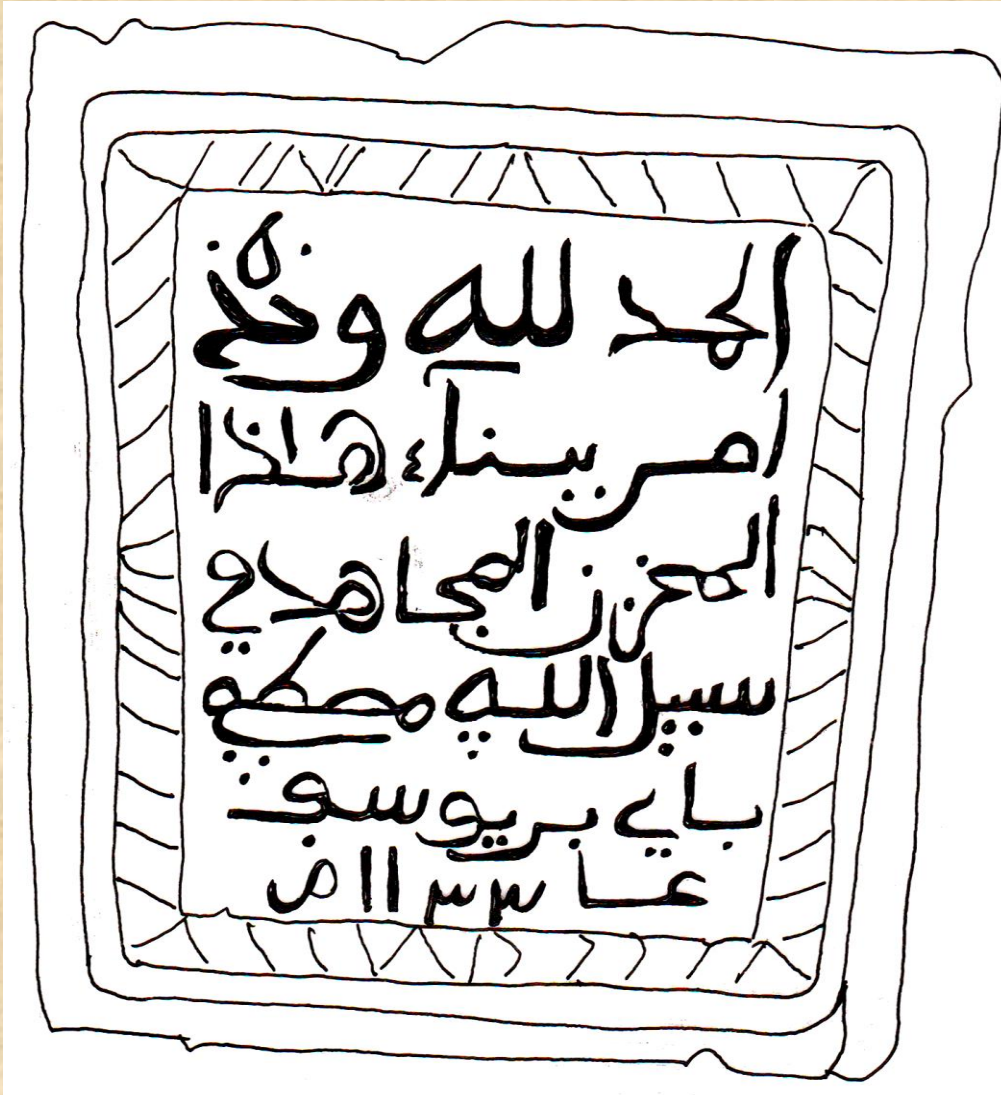 الحمد لله
امر ببناء هاذا
المخزن المجاهد في
سبيل الله مصطفي
باي بن يوسف
عا ١١٣٣